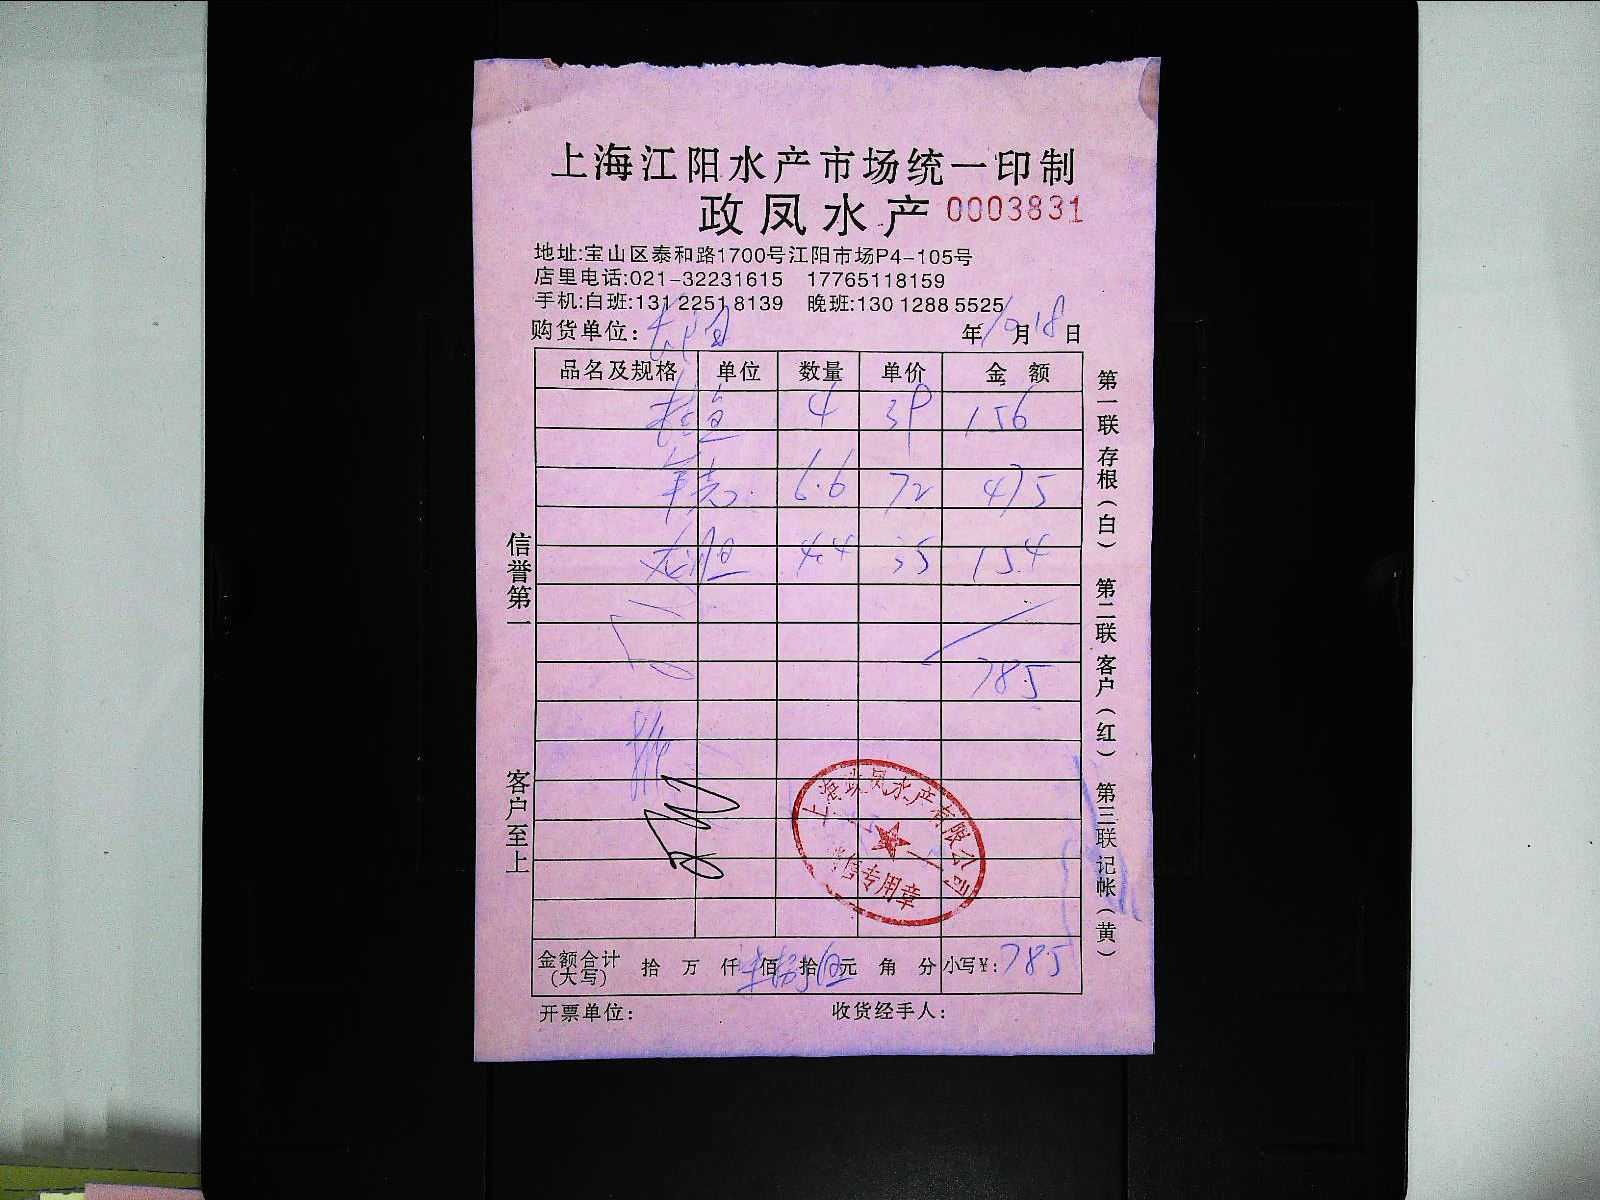 上海江阳水产市场统一印制
政凤水产 0003831
地址:宝山区泰和路1700号江阳市场P4-105号
店里电话:021-32231615 17765118159
手机:白班:131 2251 8139 晚班:130 1288 5525
购货单位: 年10月18日
品名及规格 单位 数量 单价 金额
4 39 156
6.6 72 475
4.4 35 154
785
信誉第一
客户至上
第一联 存根(白) 第二联 客户(红) 第三联 记帐(黄)
上海政凤水产有限公司
销售专用章
金额合计(大写) 拾 万 仟 佰 拾 元 角 分 小写¥:785
开票单位: 收货经手人: